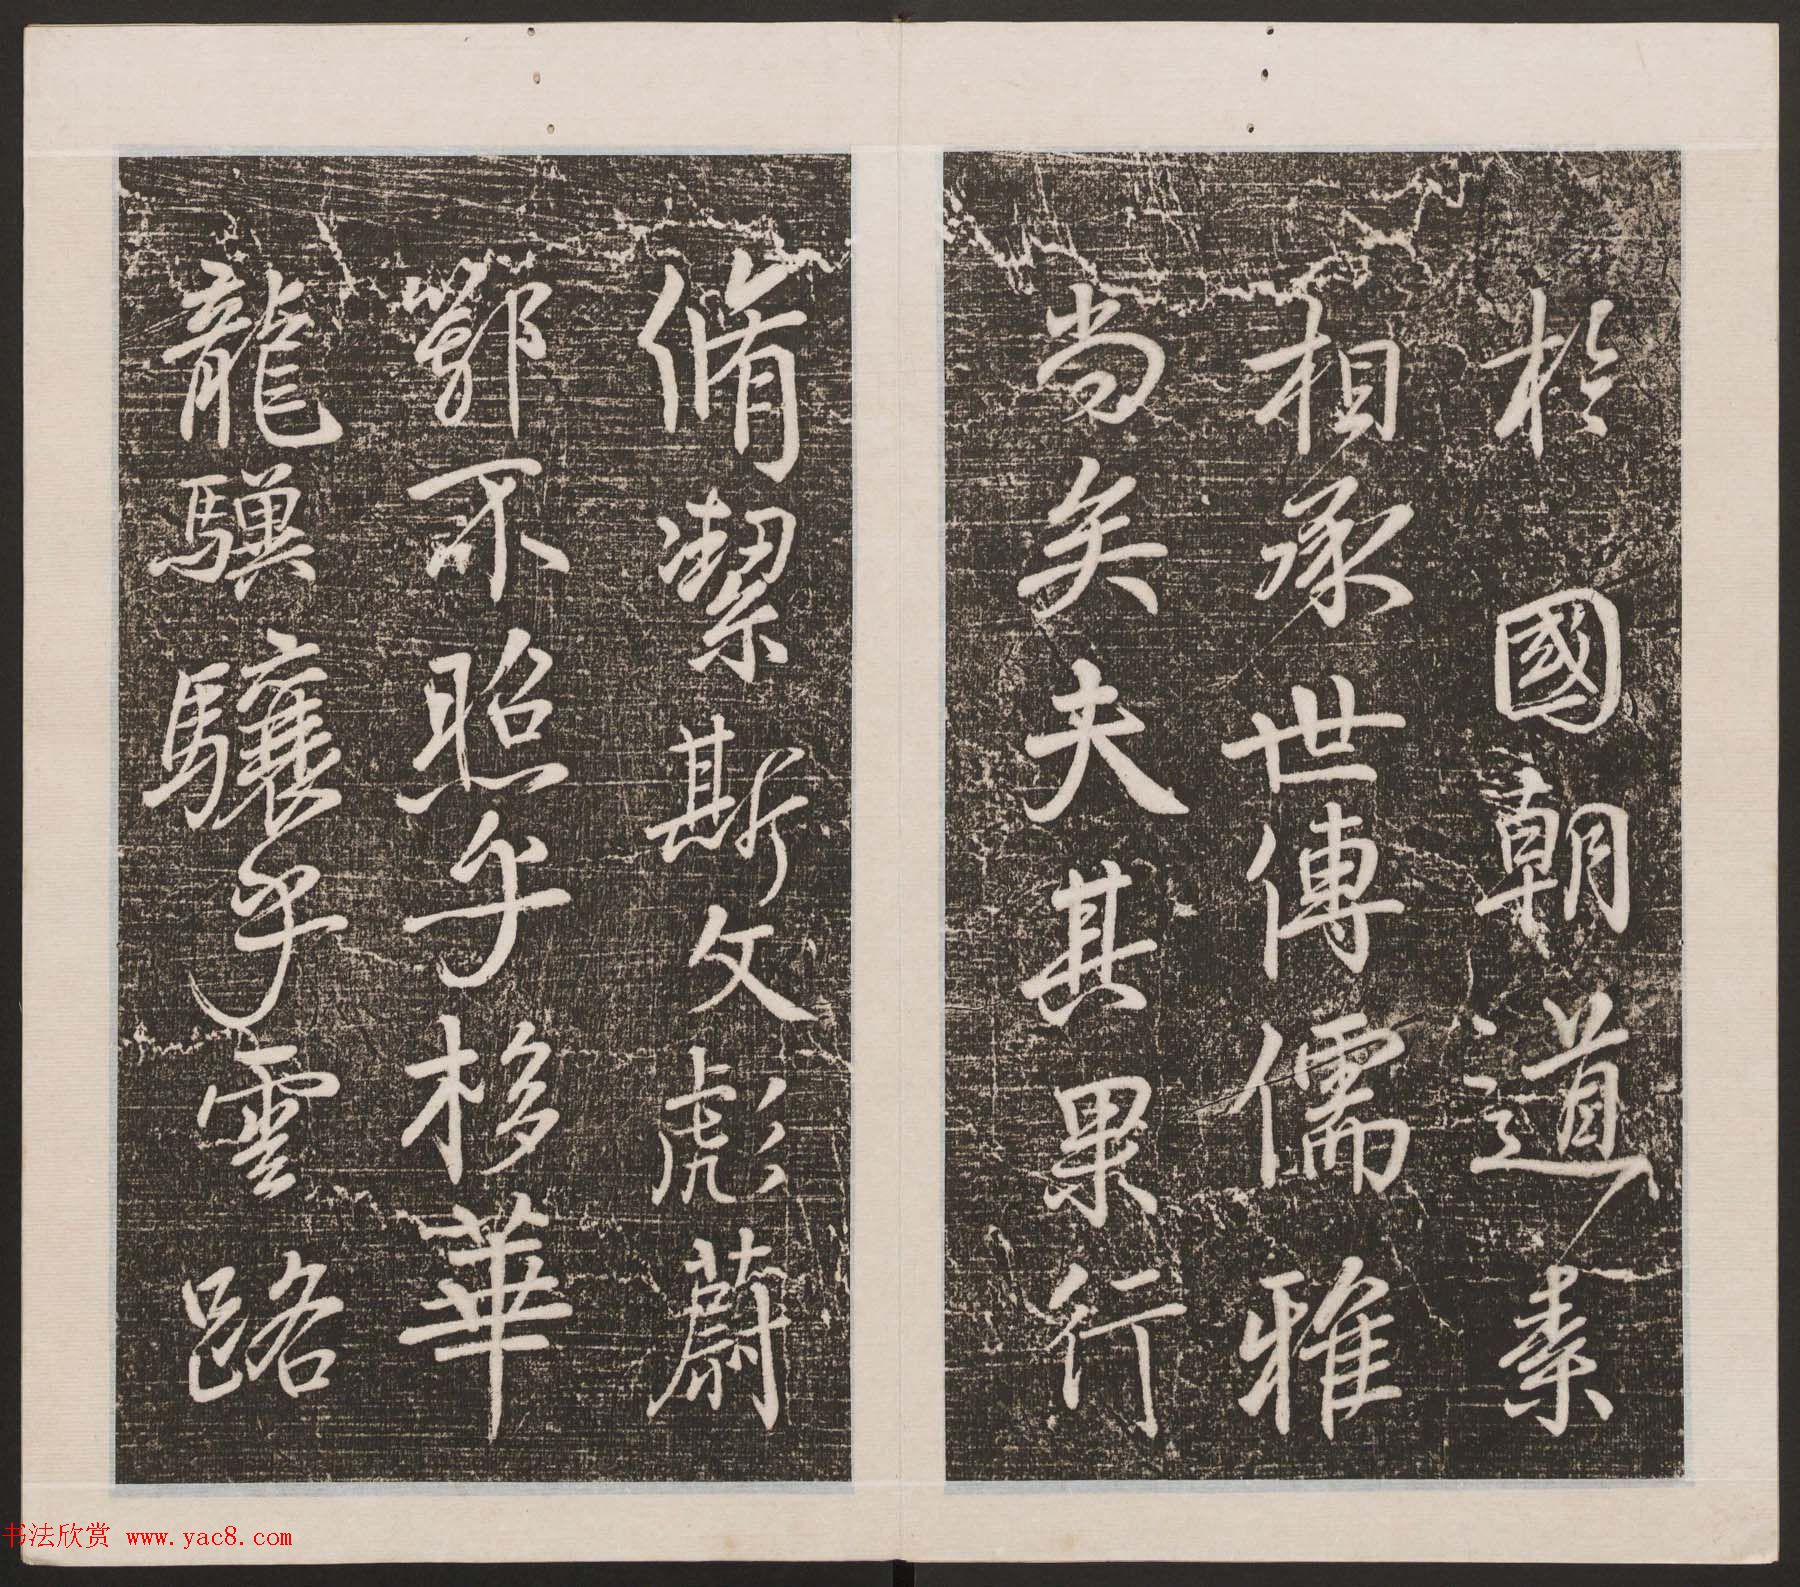 於國朝道素
相承世傳儒雅
尚矣夫其果行
脩潔斯文彪蔚
鄂不照乎移華
龍驥驤乎雲路
书法欣赏 www.yac8.com